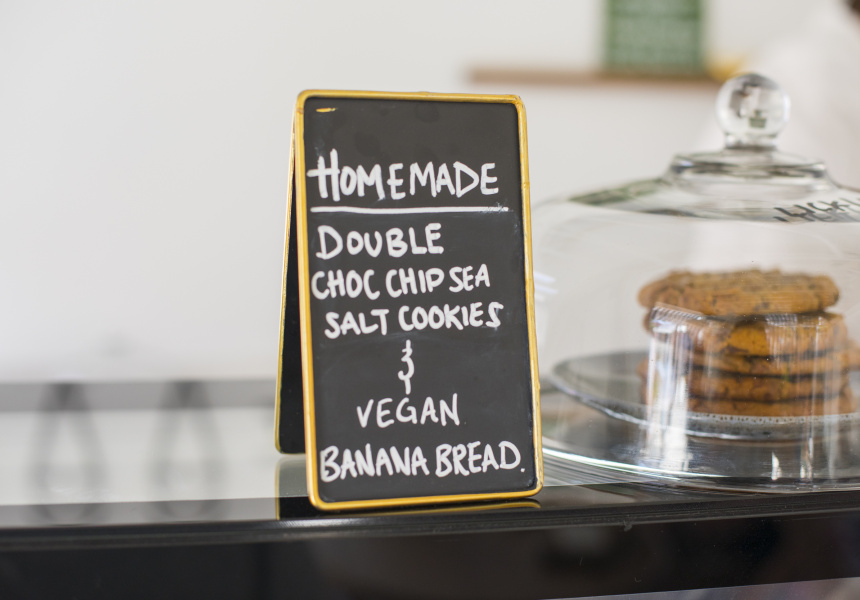 HOMEMADE
DOUBLE
CHOC CHIP SEA
SALT COOKIES
&
VEGAN
BANANA BREAD.